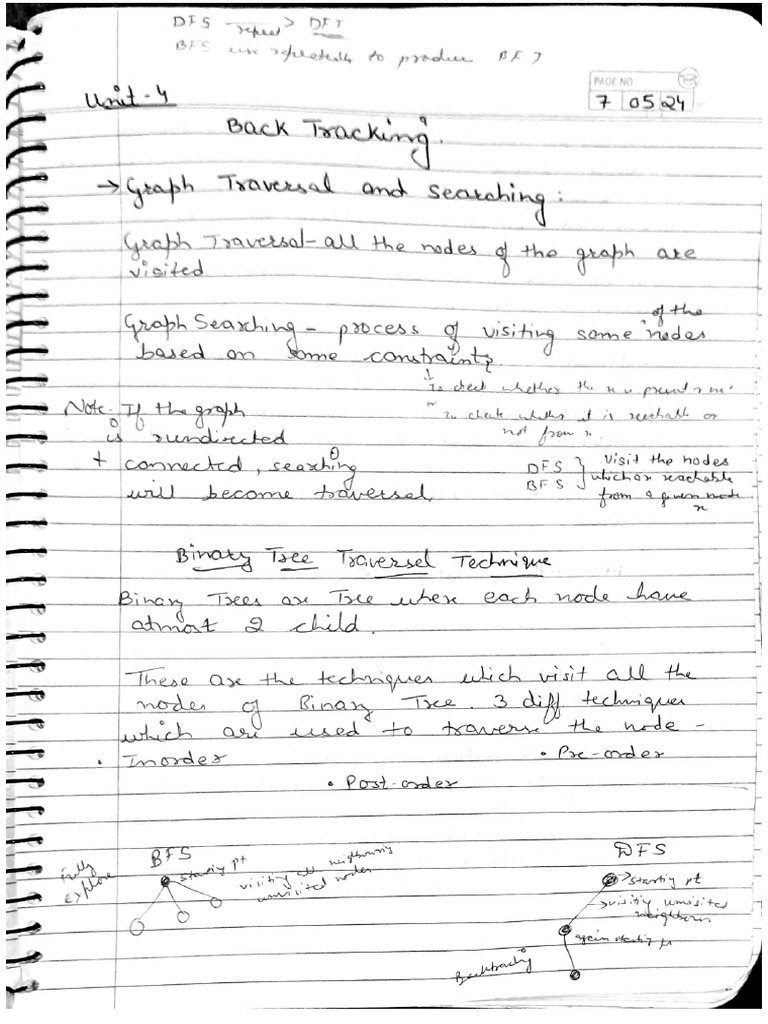 DFS repeat > DFT
BFS use repeatedly to produce BFT
PAGE NO
7 05 24
Unit-4
Back Tracking.
→ Graph Traversal and Searching:
Graph Traversal - all the nodes of the graph are
visited
of the
Graph Searching - process of visiting some nodes
based on some constraints.
To check whether the x is present or
or To check whether it is reachable or
not from x.
Note- If the graph
is undirected
+ connected, searching
will become traversal.
DFS
BFS
Visit the nodes
which are reachable
from a given node
x
Binary Tree Traversel Technique
Binary Trees are Tree where each node have
atmost 2 child.
These are the techniques which visit all the
nodes of Binary Tree. 3 diff techniques
which are used to traverse the node -
• Inorder
• Pre-order
• Post-order
Fully
explore
BFS
starting pt
visiting all neighbouring
unvisited nodes
DFS
> starting pt
→ visiting unvisited
neighbours
again starting pt
Backtracking